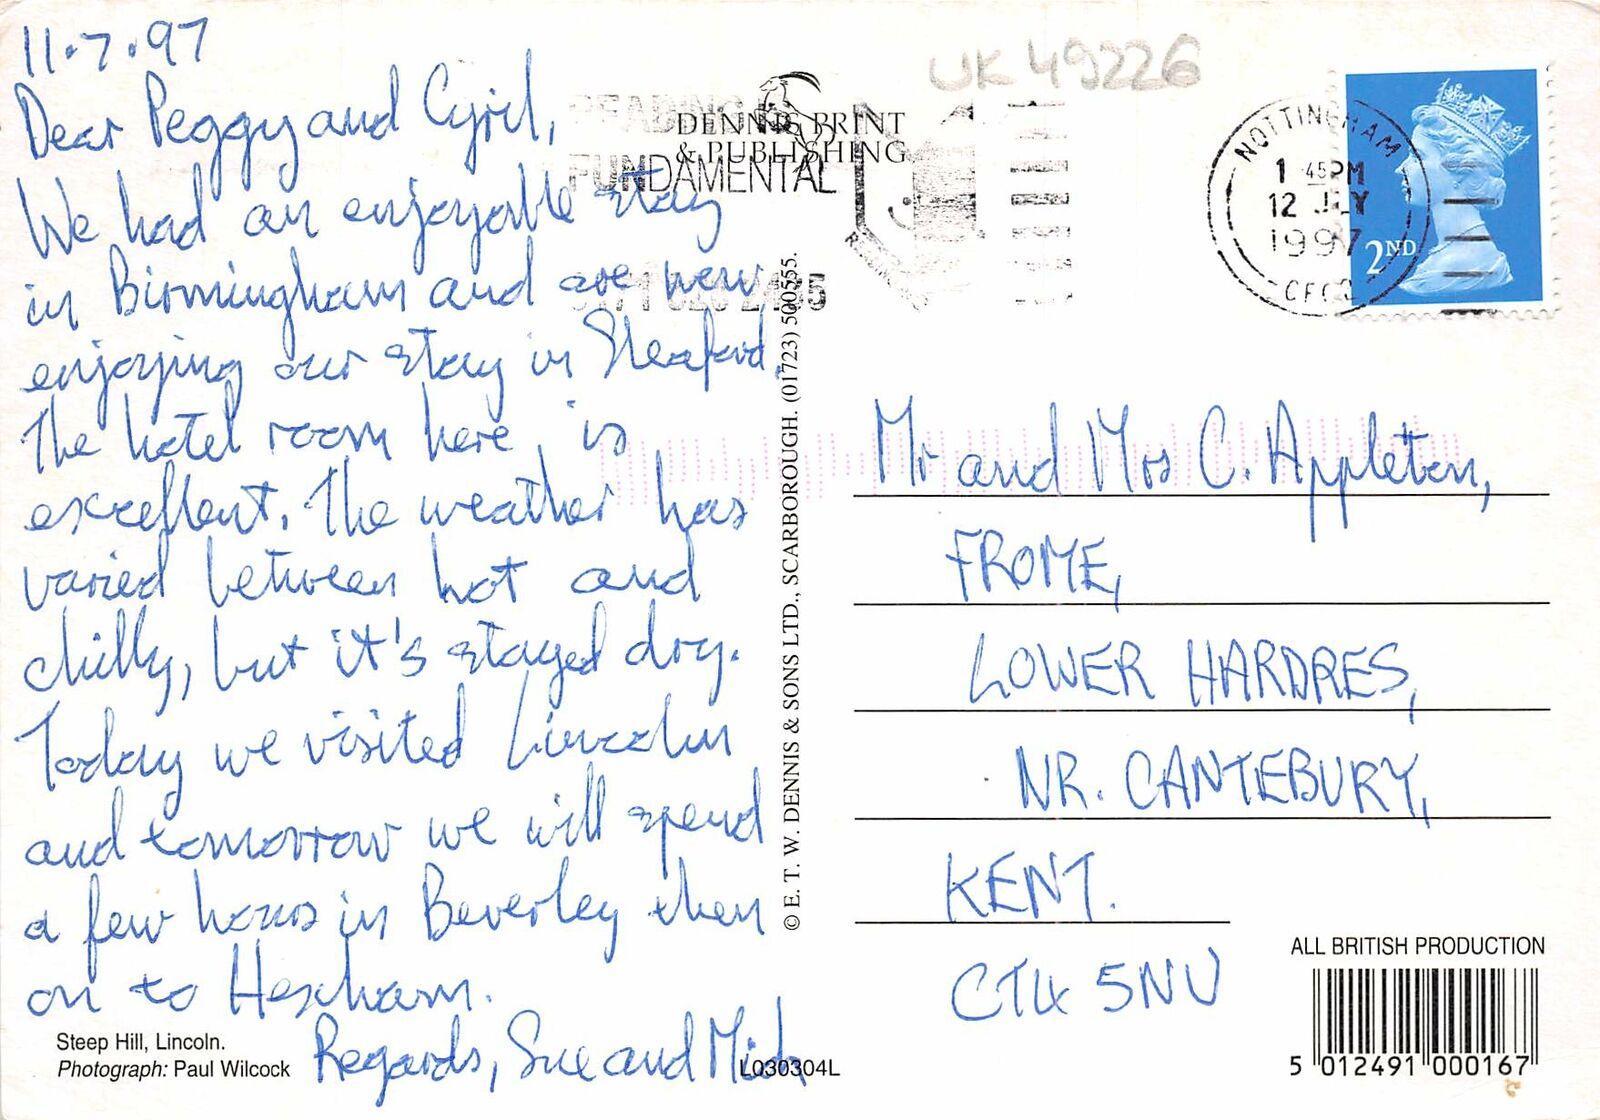 11.7.97
Dear Peggy and Cyril,
We had an enjoyable stay
in Birmingham and are now
enjoying our stay in Sleaford.
The hotel room here is
excellent. The weather has
varied between hot and
chilly, but it's stayed dry.
Today we visited Lincoln
and tomorrow we will spend
a few hours in Beverley then
on to Hexham.
Regards, Sue and Mick
Steep Hill, Lincoln.
Photograph: Paul Wilcock
L030304L
© E. T. W. DENNIS & SONS LTD., SCARBOROUGH. (01723) 500555.
UK 49226
DENNIS PRINT
& PUBLISHING
READING IS
FUNDAMENTAL
NOTTINGHAM
1 45PM
12 JLY
1997
2ND
Mr and Mrs C. Appleton,
FROME,
LOWER HARDRES,
NR. CANTEBURY,
KENT.
CT4 5NU
ALL BRITISH PRODUCTION
5 012491 000167